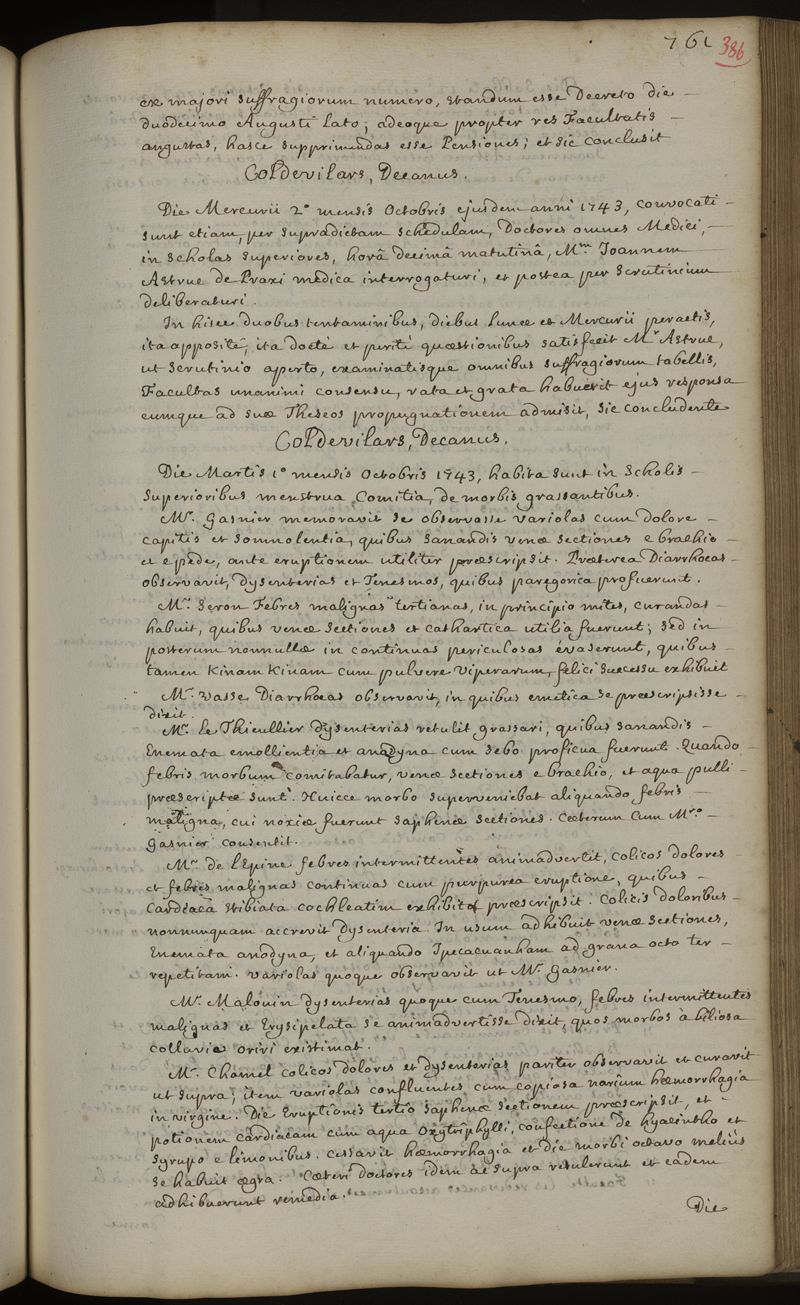 761
386
ex majori suffragiorum numero, standum esse Decreto die
duodecimo Augusti lato; adeoque propter res Facultatis
angustas, hasce supprimendas esse Pensiones; et sic conclusit
Col De vilars, Decanus.
Die Mercurii 2º mensis Octobris ejusdem anni 1743, convocati
sunt etiam, per supradictam schedulam, Doctores omnes Medici,
in scholas superiores, horâ decimâ matutinâ, Mum Joannem
Astruc de Praxi medica interrogaturi, et postea per scrutinium
deliberaturi.
In hisce duobus tentaminibus, diebus lunæ et Mercurii peractis,
ita appositè, ita doctè et peritè quæstionibus satisfecit Mr Astruc,
ut scrutinio aperto, examinatisque omnibus suffragiorum tabellis,
Facultas unanimi consensu, rata et grata habuerit ejus responsa
eumque ad suæ Theseos propugnationem admisit, sic concludente
Col De vilars, Decanus.
Die Martis 1º mensis Octobris 1743, habita sunt in scholis
superioribus menstrua Comitia, de morbis grassantibus.
Mr. Gasnier memoravit se observasse variolas cum dolore
capitis et somnolentia, quibus sanandis venæ sectiones e brachio
et e pede, ante eruptionem utiliter præscripsit. Præterea Diarrhoeas
observavit, Dysenterias et Tenesmos, quibus paregorica profuerunt.
Mr. Seron Febres malignas tertianas, in principio mites, curandas
habuit, quibus venæ sectiones et cathartica utilia fuerunt; sed in
posterum nonnullæ in continuas periculosas evaserunt, quibus
tamen Kinam Kinam cum pulvere viperarum, felici successu exhibuit
Mr. Vasse Diarrhoeas observavit, in quibus emetica se præscripsisse
dixit.
Mr. le Thieullier Dysenterias retulit grassari, quibus sanandis
Enemata emollientia et anodyna cum sebo proficua fuerunt. Quando
febris morbum comitabatur, venæ sectiones e brachio, et aqua pulli
præscriptæ sunt. Huicce morbo superveniebat aliquando febris
maligna, cui noxiæ fuerunt saphenæ sectiones. Cæterum cum Mro
Gasnier consentit.
Mr. de lEpine febres intermittentes animadvertit, Colicos dolores
et febres malignas continuas cum purpurea eruptione, quibus
Cardiaca stibiata cochleatim exhibita præscripsit. Colicis doloribus
nonnunquam accrevit Dysenteria. In usum adhibuit venæ sectiones,
Enemata anodyna, et aliquando Ipecacuanham ad grana octo ter
repetitam. variolas quoque observavit ut Mr. Gasnier.
Mr. Malouin Dysenterias quoque cum Tenesmo, febres intermittentes
malignas et Erysipelata se animadvertisse dixit, quos morbos à biliosa
colluvie oriri existimat.
Mr. Chomel colicos dolores et dysenterias pariter observavit et curavit
ut supra; item variolas confluentes cum copiosa narium hæmorrhagia
in virgine. Die Eruptionis tertio saphenæ sectionem præscripsit, et
potionem cardiacam cum aqua oxytriphylli, confectione de hyacintho et
syrupo e limonibus. cessavit hæmorrhagia et die morbi octavo melius
se habuit ægra. Cæteri doctores idem ac supra retulerunt et eadem
adhibuerunt remedia.
Die